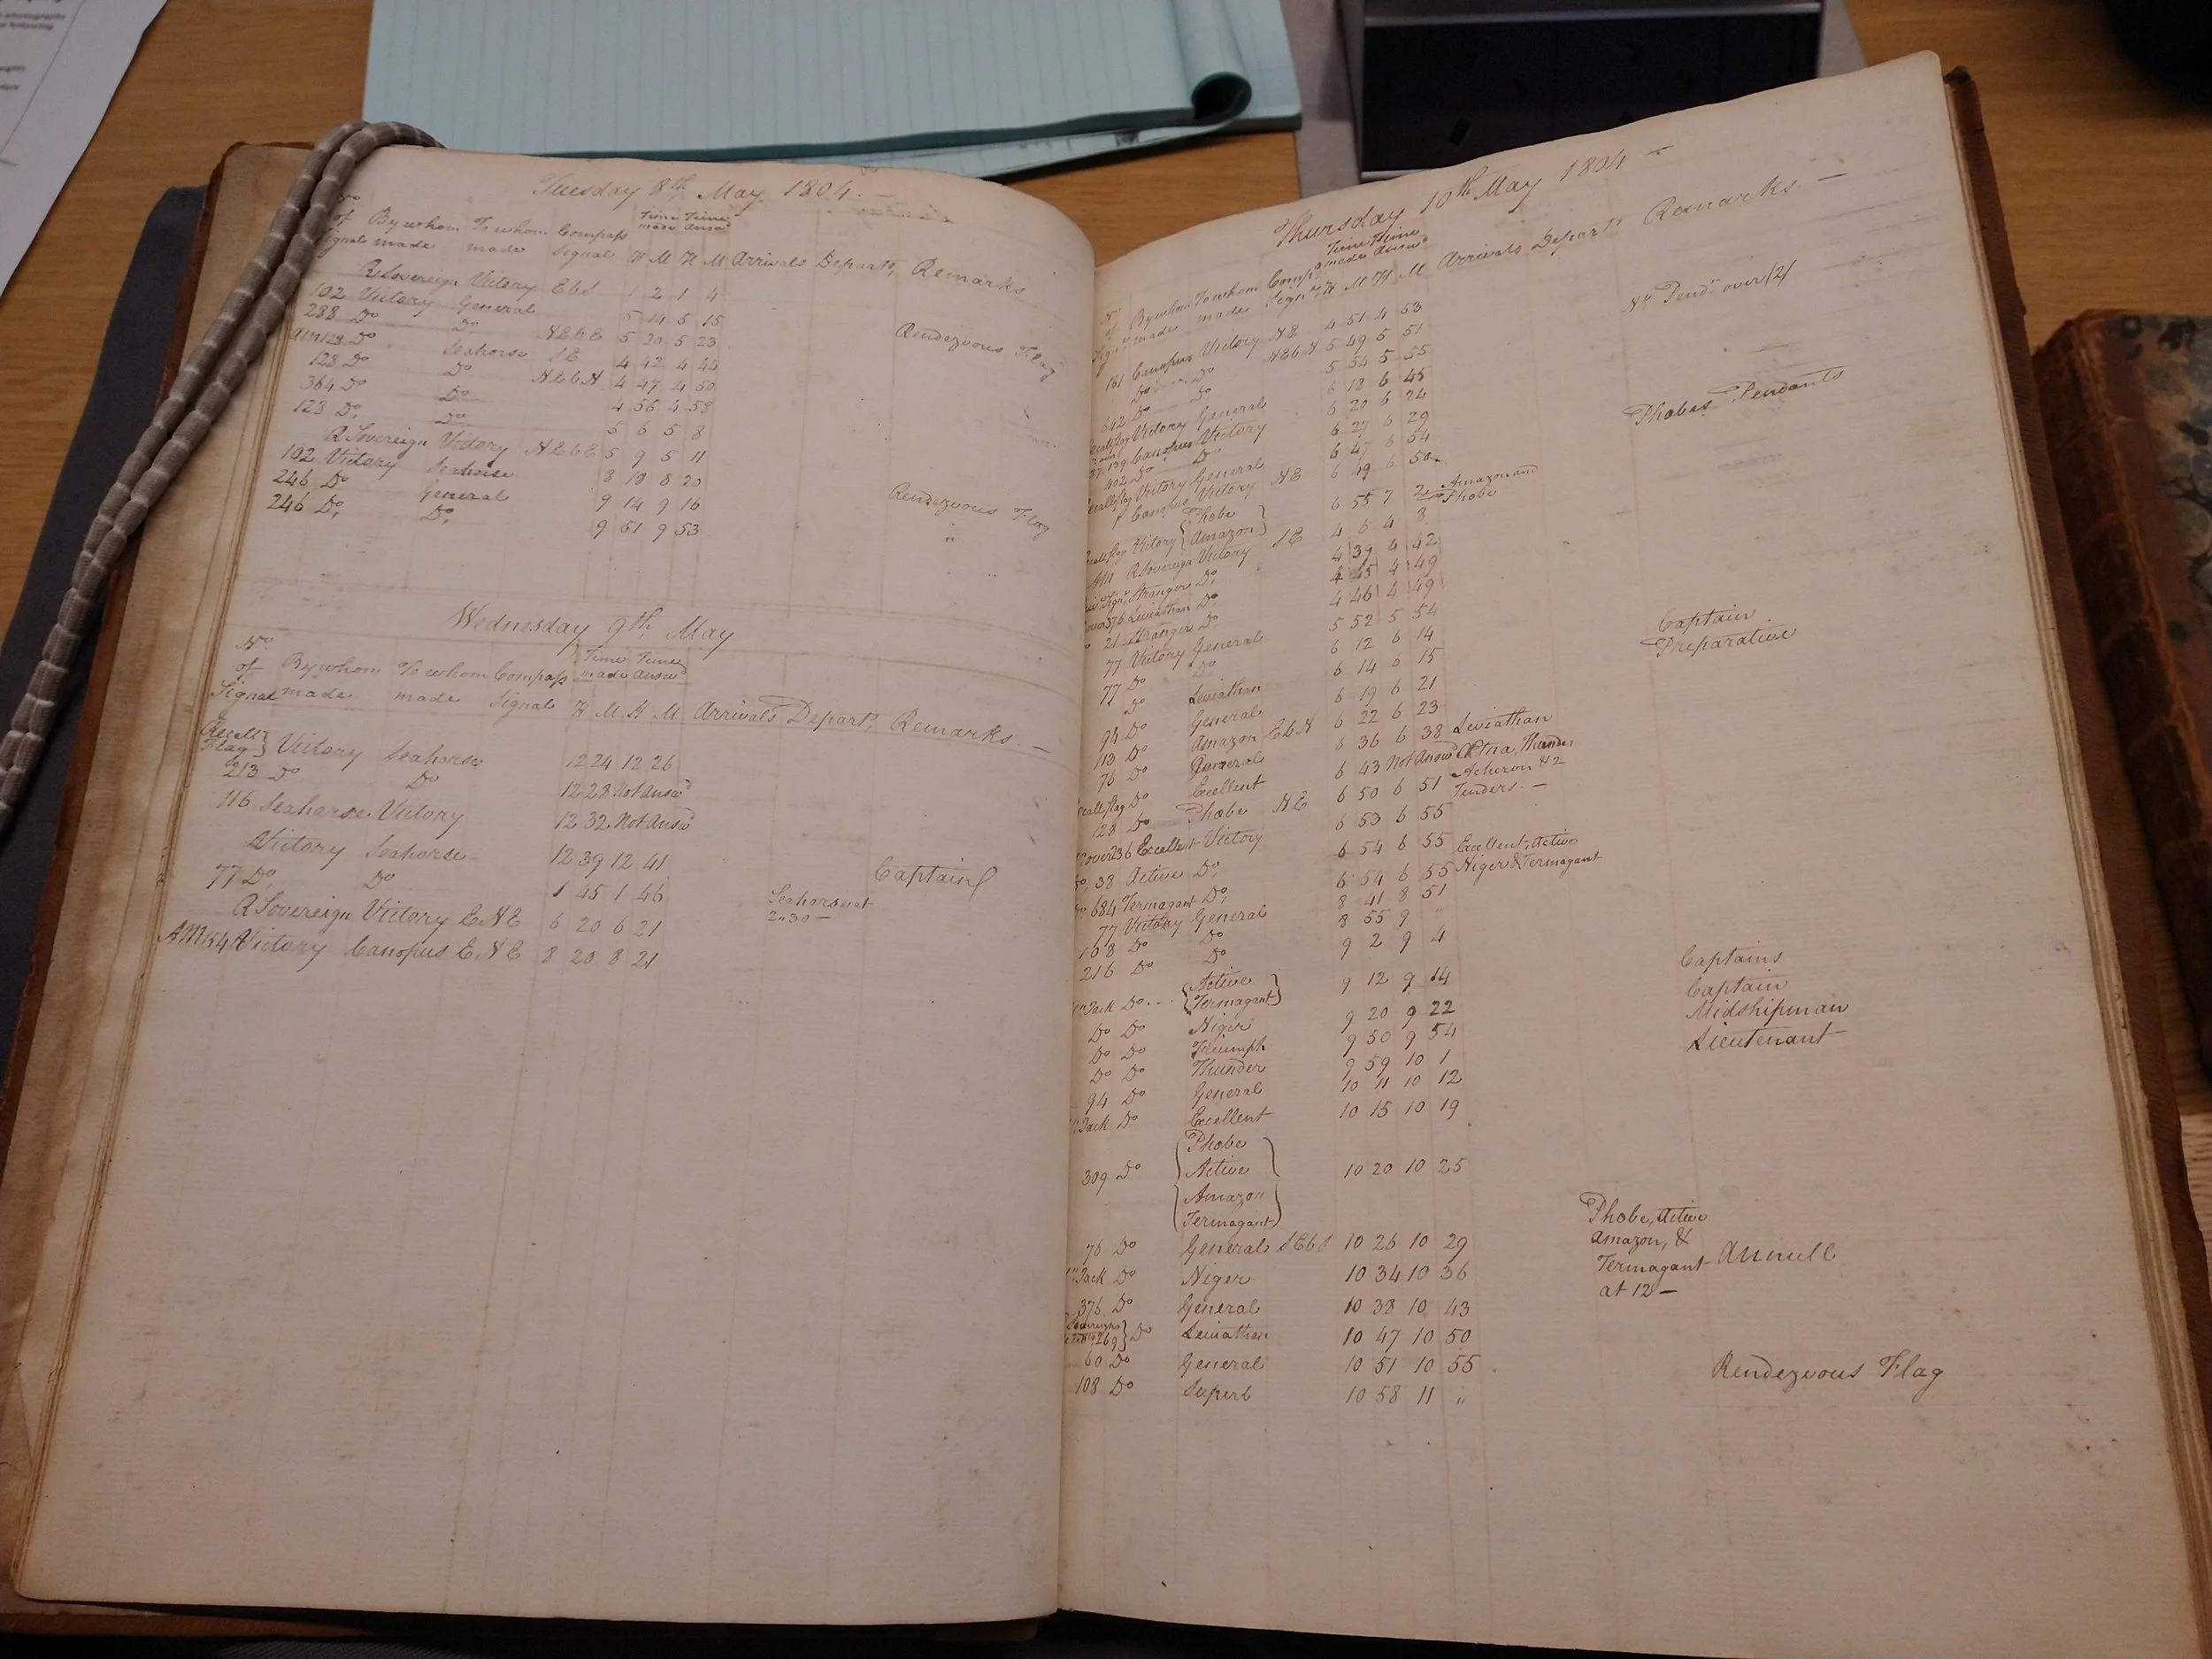 Tuesday 8th May 1804. —
No
of By whom To whom Compass Time Time
Signal made made Signal made Answd
H M H M Arrivals Departs, Remarks
R Sovereign Victory EbS 1 2 1 4
102 Victory General 5 14 5 15
288 Do Do NEbE 5 20 5 23 Rendezvous Flag
AM 123 Do Seahorse SE 4 42 4 44
128 Do Do NEbN 4 47 4 50
364 Do Do 4 56 4 58
123 Do, Do 5 6 5 8
R Sovereign Victory NEbE 5 9 5 11
102 Victory Seahorse 8 18 8 20
246 Do General 9 14 9 16 Rendezvous Flag
246 Do, Do, 9 51 9 53 "
Wednesday 9th May
No
of By whom To whom Compass Time Time
Signal made made Signal made Answd
H M H M Arrivals Depart, Remarks. —
Recall
Flag } Victory Seahorse 12 24 12 26
213 Do Do 12 28 Not Answd
116 Seahorse Victory 12 32 Not Answd
Victory Seahorse 12 39 12 41
77 Do, Do 1 45 1 46 Captain
R Sovereign Victory ENE 6 20 6 21 Seahorse at
2"30 —
AM 154 Victory Canopus ENE 8 20 8 21
Thursday 10th May 1804 —
No
of By whom To whom Time Time
made made made Answd
H M H M Arrivals Depart Remarks. —
161 Canopus Victory NE 4 51 4 53 No Pendt over (2)
Do Do NEbN 5 49 5 51
642 Do Do 5 54 5 55
Recall flag Victory General 6 18 6 45
139 Canopus Victory 6 20 6 24 Phobes Pendants
402 Do Do 6 27 6 29
Recall flag Victory General 6 47 6 54
Canopus Victory NE 6 49 6 50
Recall flag Victory { Phobe
Amazon } 6 55 7 2 Amazon and
Phobe
AM R Sovereign Victory SE 4 6 4 8
Stranger Do, 4 39 4 42
376 Leviathan Do, 4 45 4 49
21 Stranger Do 4 46 4 49
77 Victory General 5 52 5 54 Captain
77 Do Do 6 12 6 14 Preparative
Do Leviathan 6 14 6 15
94 Do General 6 19 6 21
113 Do Amazon EbN 6 22 6 23
76 Do General 6 36 6 38 Leviathan
Recall flag Do Excellent 6 43 Not Answd Etna, Thunder
128 Do Phobe NE 6 50 6 51 Acheron & 2
Tenders. —
over 236 Excellent Victory 6 53 6 55
Do, 38 Active Do, 6 54 6 55 Excellent, Active
Do 684 Termagant Do, 6 54 6 55 Niger & Termagant
77 Victory General 8 41 8 51
108 Do Do 8 55 9 "
216 Do Do 9 2 9 4
Jack Do... { Active
Termagant } 9 12 9 14 Captains
Do Do Niger 9 20 9 22 Captain
Do Do Triumph 9 50 9 54 Midshipman
Do Do Thunder 9 59 10 1 Lieutenant
94 Do General 10 11 10 12
Jack Do Excellent 10 15 10 19
309 Do { Phobe
Active
Amazon
Termagant } 10 20 10 25
76 Do General SEbS 10 26 10 29 Phobe, Active
Amazon, &
Termagant
at 12 —
Jack Do Niger 10 34 10 36 Annull
376 Do General 10 38 10 43
269 } Do Leviathan 10 47 10 50
60 Do General 10 51 10 55 Rendezvous Flag
108 Do Superb 10 58 11 "